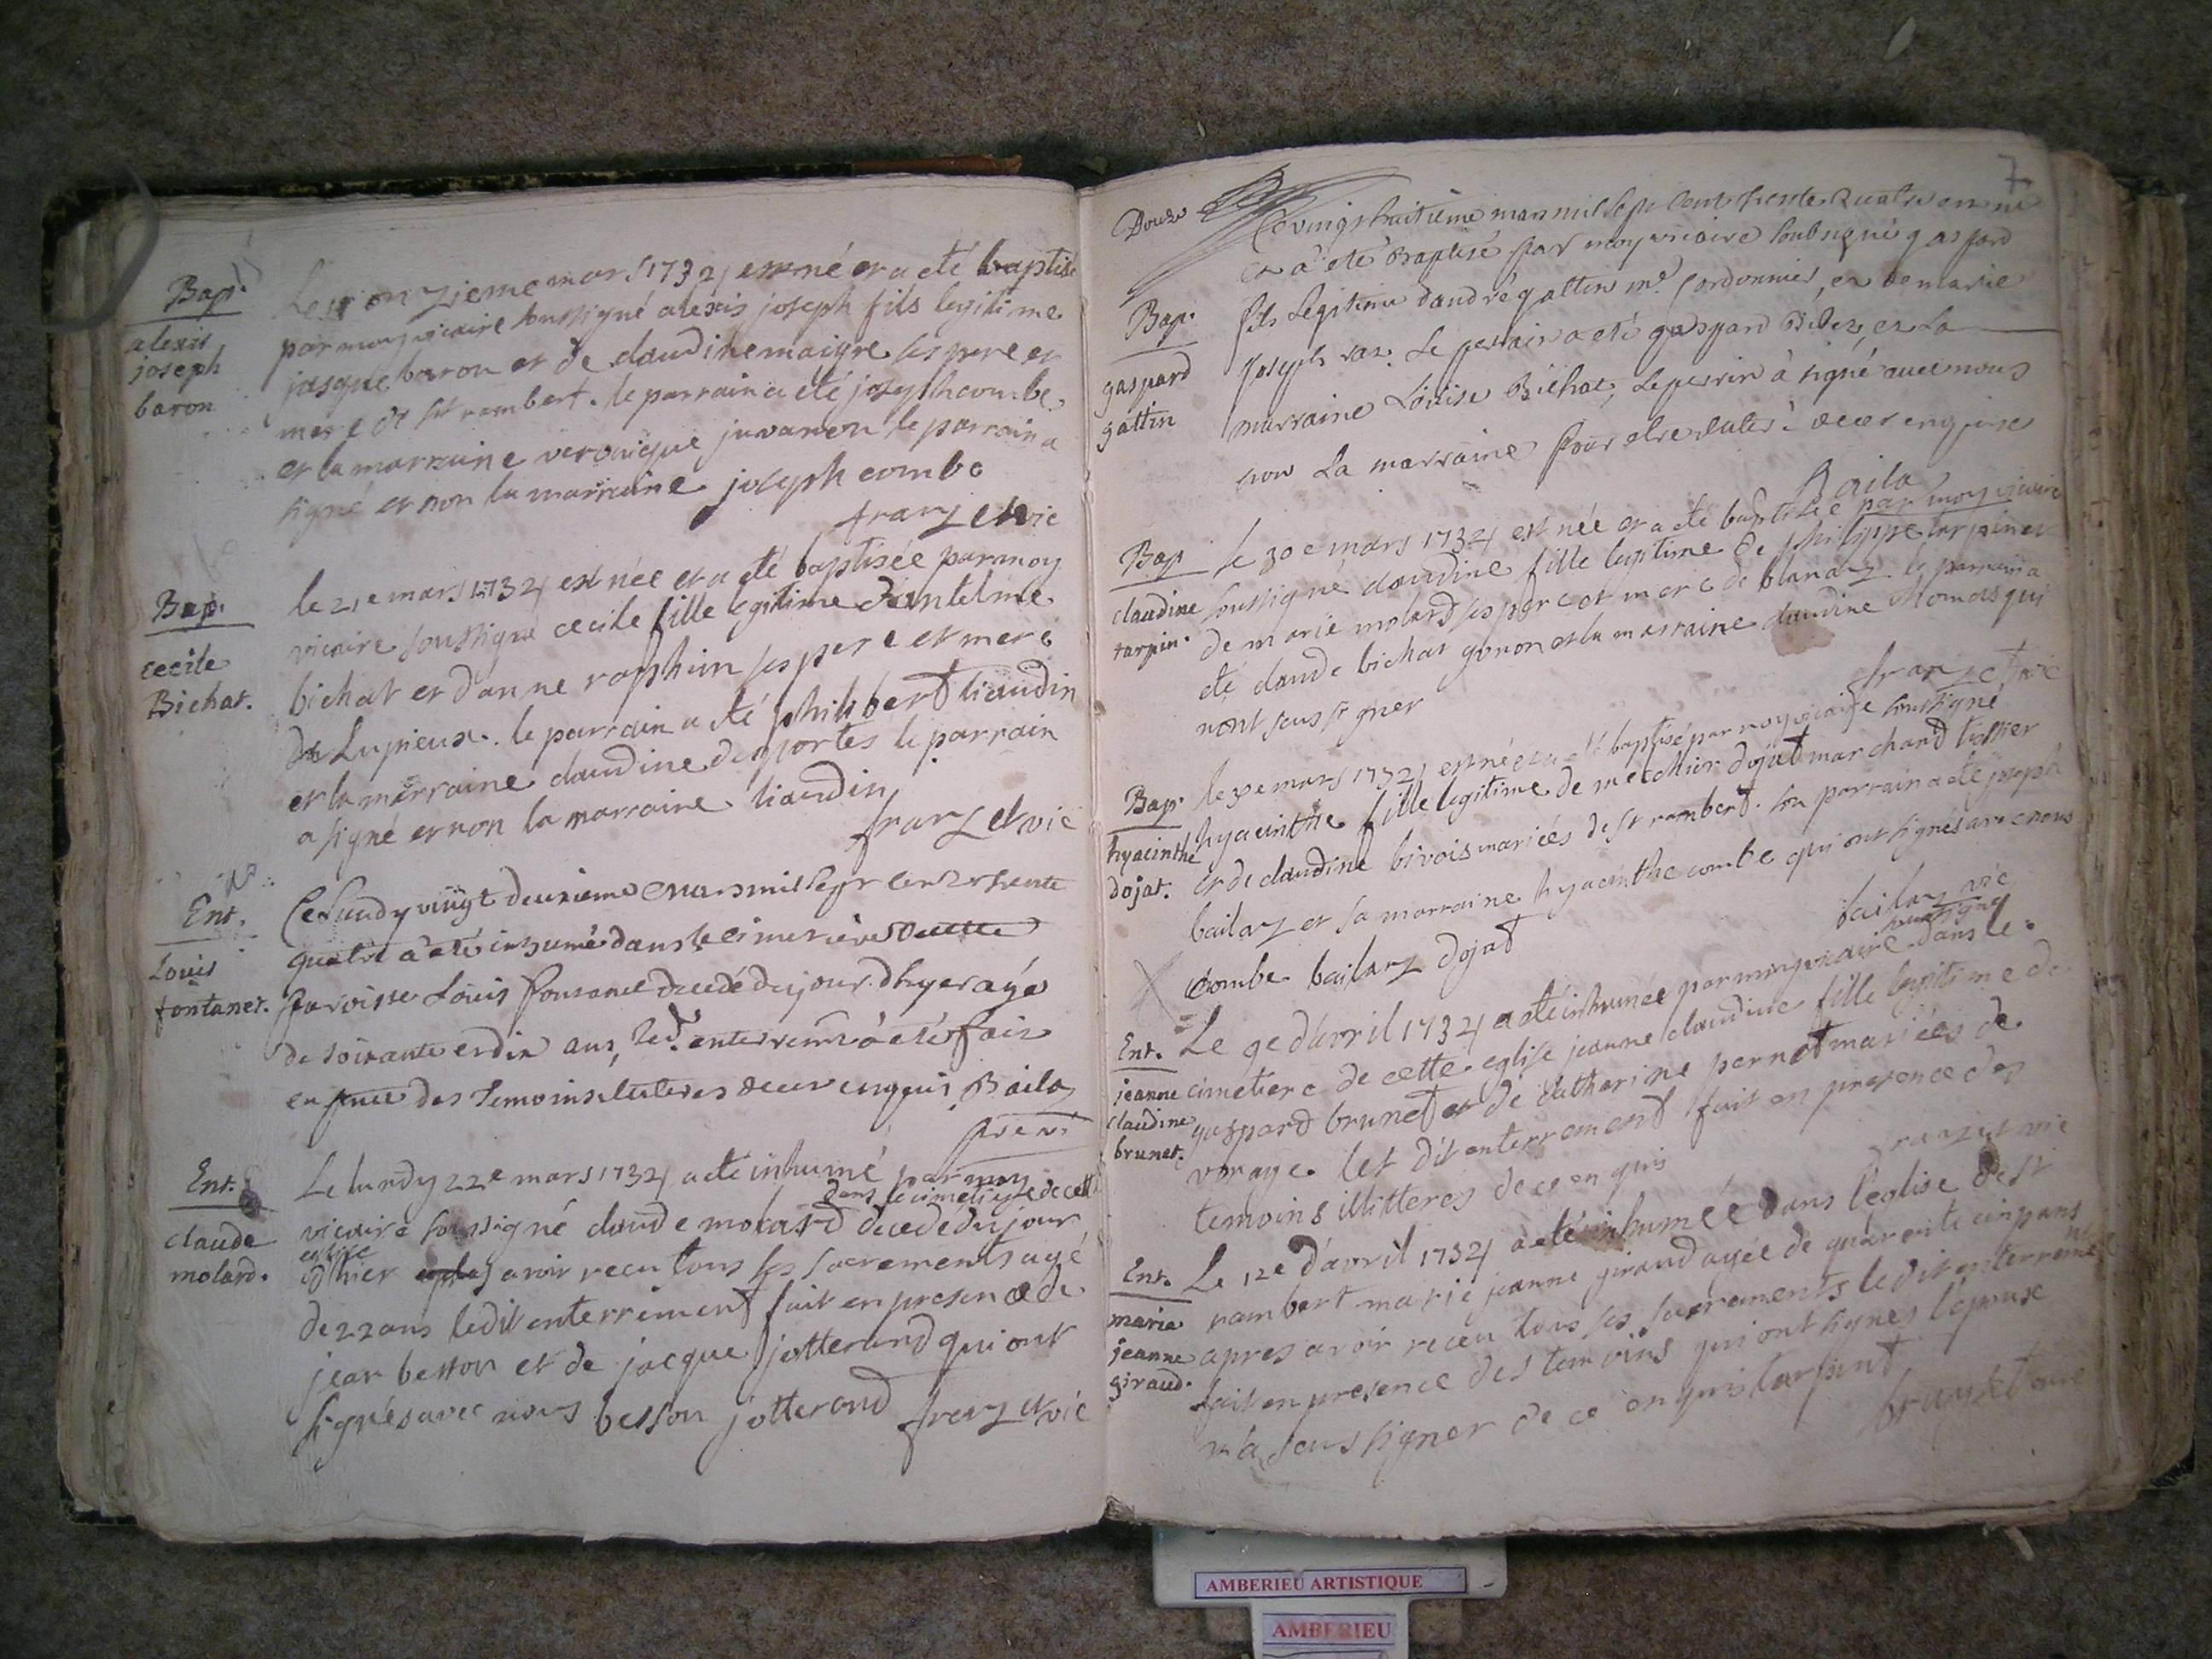 Bap.
alexis
joseph
baron
Le onzieme mars 1734 est né et a eté baptisé
par moy vicaire soussigné alexis joseph fils legitime
jasque baron et de claudine maigre ses pere et
mere de st rambert. le parrain a eté joseph combe
et la marraine veronique juvanon le parrain a
signé et non la marraine joseph combe
franzet vic
Bap.
cecile
Bichat.
le 21e mars 1734 est née et a eté baptisée par moy
vicaire soussigné cecile fille legitime d'antelme
bichat et d'anne raphin ses pere et mere
de Lupieux. le parrain a eté philibert liaudin
et la marraine claudine desportes le parrain
a signé et non la marraine. liaudin
franzet vic
Ent.
Louis
fontanet.
Ce Lundy vingt deuxieme mars mil sept cent trente
quatre a eté inhumé dans le cimetiere de cette
parroisse Louis fontanet decedé du jour d'hyer agé
de soixante et dix ans, led. enterremt a eté fait
en pnce des temoins de ce enquis Bailaz
Ent.
claude
molard.
Le lundy 22e mars 1734 a eté inhumé par moy
dans le cimetiere de cette
vicaire soussigné claude molard decedé du jour
eglise
d'hier avoir recu tous ses sacrements agé
de 22 ans ledit enterrement fait en presence de
jean besson et de jacque jotterand qui ont
signés avec nous besson jotterand franzet vic
7
Douze
Bap.
gaspard
gattin
Ce vingt huitieme mars mil sept cent trente quatre est né
et a eté Baptisé par moy vicaire soubsigné gaspard
fils Legitime d'andré gattin me. Cordonnier, et de marie
Joseph Le parrain a eté gaspard et La
marraine Louise Bichat, Le parrin à signé avec nous
non La marraine pour etre de ce enquise
Bailaz
Bap
claudine
tarpin.
le 30e mars 1734 est née et a eté baptisée par moy vicaire
soussigné claudine fille legitime de philippe tarpin et
de marie molard ses pere et mere de blanaz le parrain a
eté claude bichat gonon et la marraine claudine thomas qui
n'ont scus signer
franzet vic
Bap.
hyacinthe
dojat.
le 30e mars 1734 est né et a eté baptisé par moy vicaire soussigné
hyacinthe fille legitime de melchior dojat marchand tissier
et de claudine bivois mariées de st rambert. son parrain a eté joseph
bailaz et sa marraine hyacinthe combe qui ont signés avec nous
combe bailaz dojat
bailaz vic
Ent.
jeanne
claudine
brunet.
Le 9e d'avril 1734 a eté inhumée par moy vicaire soussigné dans le
cimetiere de cette eglise jeanne claudine fille legitime de
gaspard brunet et de catherine pernet mariées de
vorage. Let dit enterrement fait en presence des
temoins illitteres de ce enquis
franzet vic
Ent.
marie
jeanne
giraud.
Le 12e d'avril 1734 a eté inhumée dans l'eglise de st
rambert marie jeanne giraud agée de quarente cinq ans
apres avoir receu tous ses sacrements ledit enterrement
fait en presence des temoins qui ont signes l'epoux
n'a scus signer de ce enquis tarpin
franzet vic
AMBERIEU ARTISTIQUE
AMBERIEU